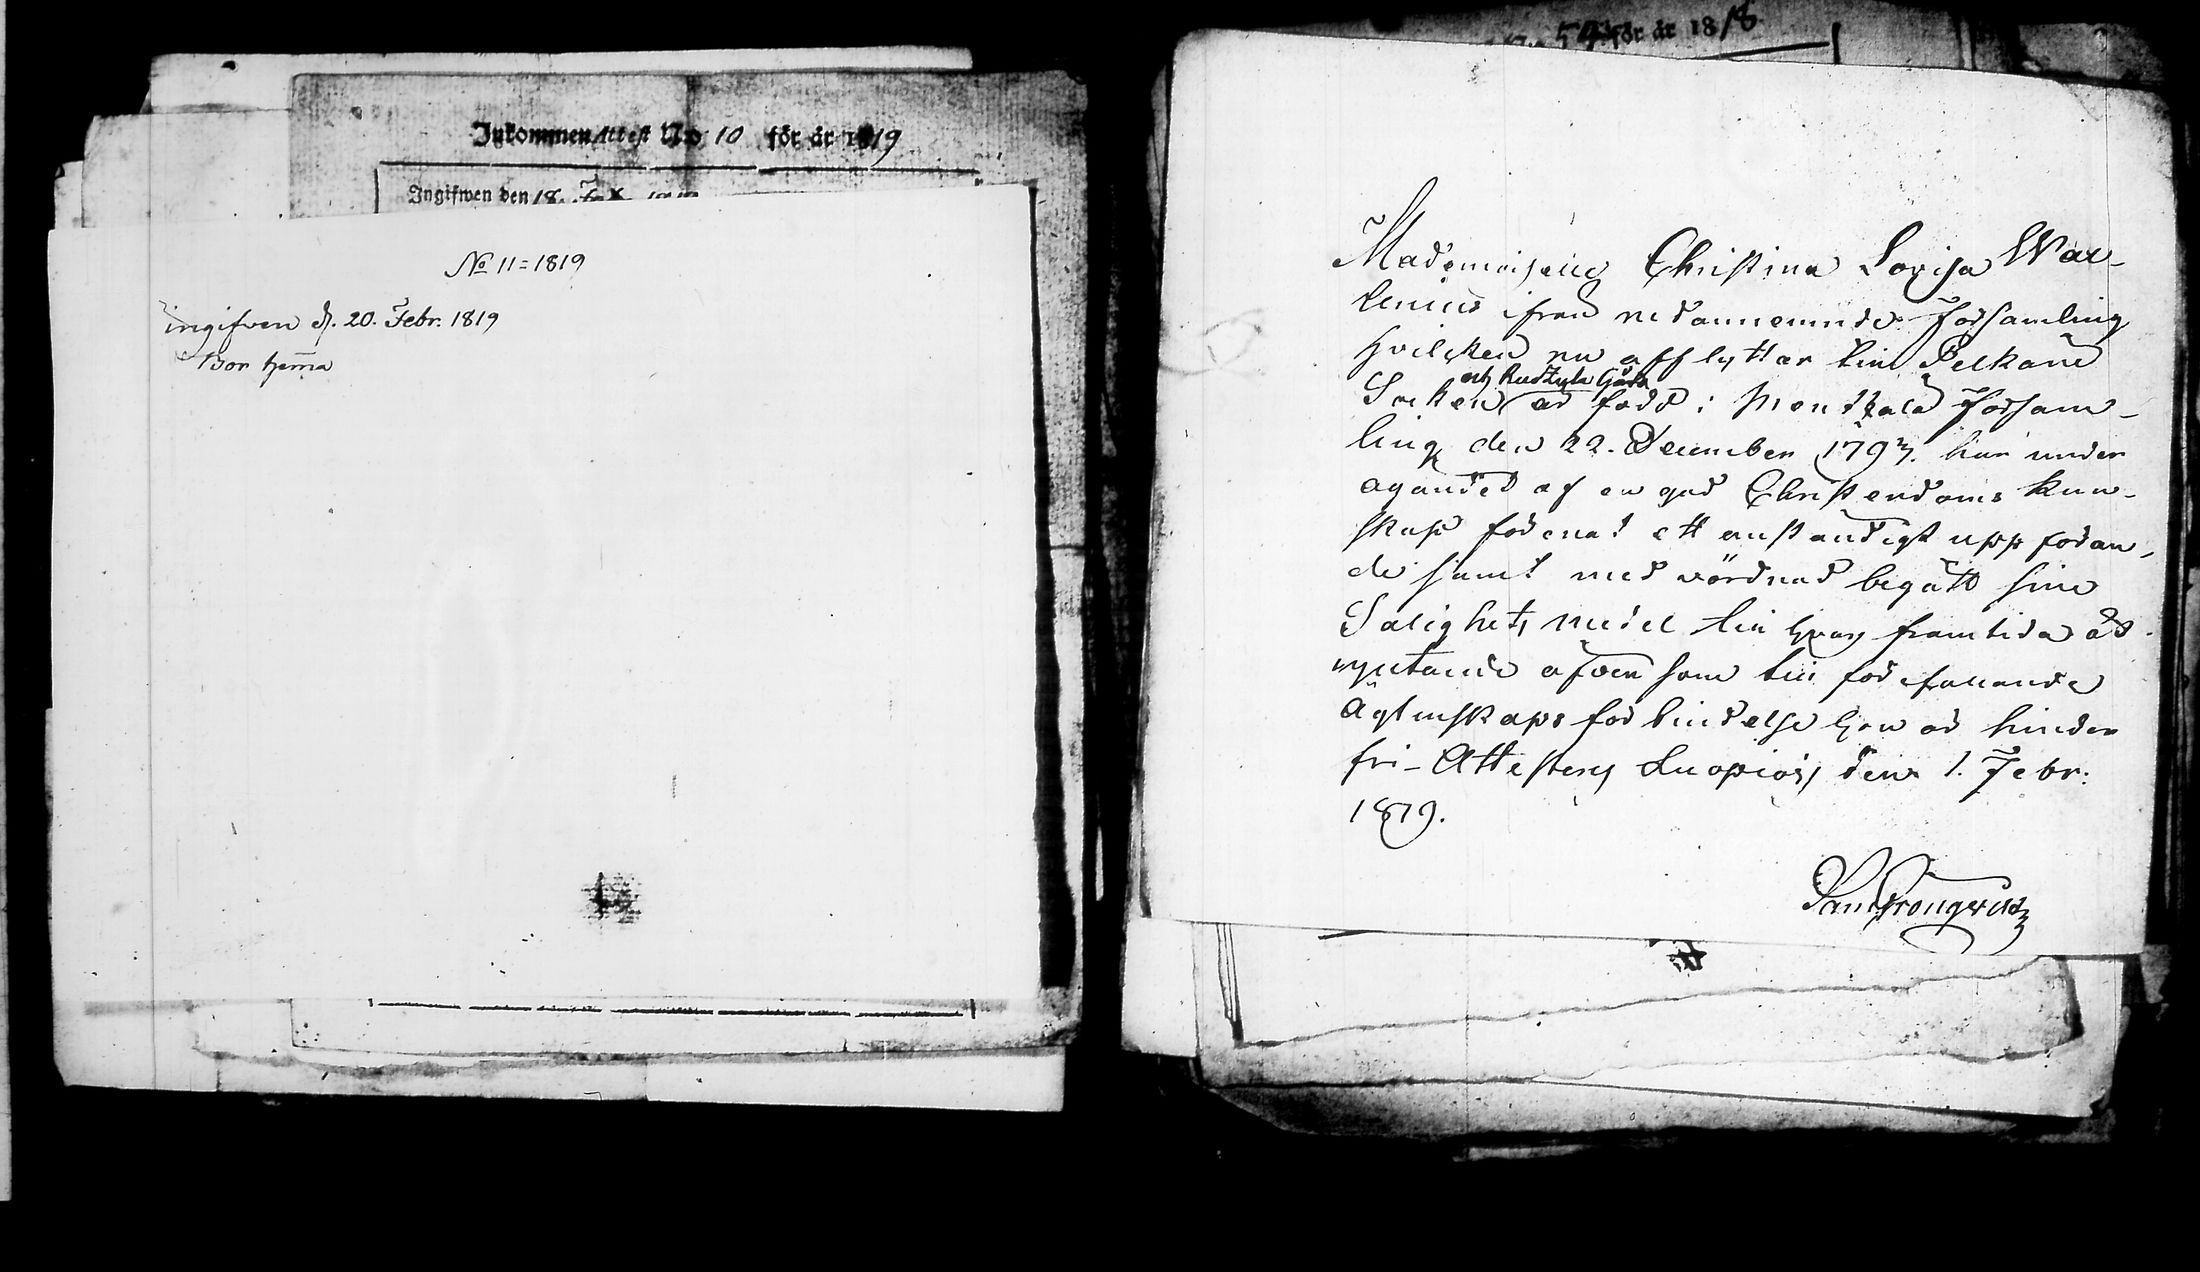 Inkommen Attest No 10 för år 1819
Ingifwen den 18
No 11 = 1819
ingifven d. 20. Febr. 1819
Bor hema
för år 1818
Mademoiselle Christina Lovisa Wal-
lenius ifrån nedannemnde Församling
hvilcken nu afflyttar till Pelkäne
och Ruokula Gård
Socken är född i Mendzala Församl-
ling den 22. December 1797. har under
ägandet af en god Christendoms kun-
skap förenat ett anständigt uppföran-
de samt med vördnad begått sine
Salighets medel till hvars framtida åt-
njutande äfven som till förefallande
Ägtenskaps förbindelse hon är hinder
fri - Attesteras Luopiois den 1. Febr.
1819.